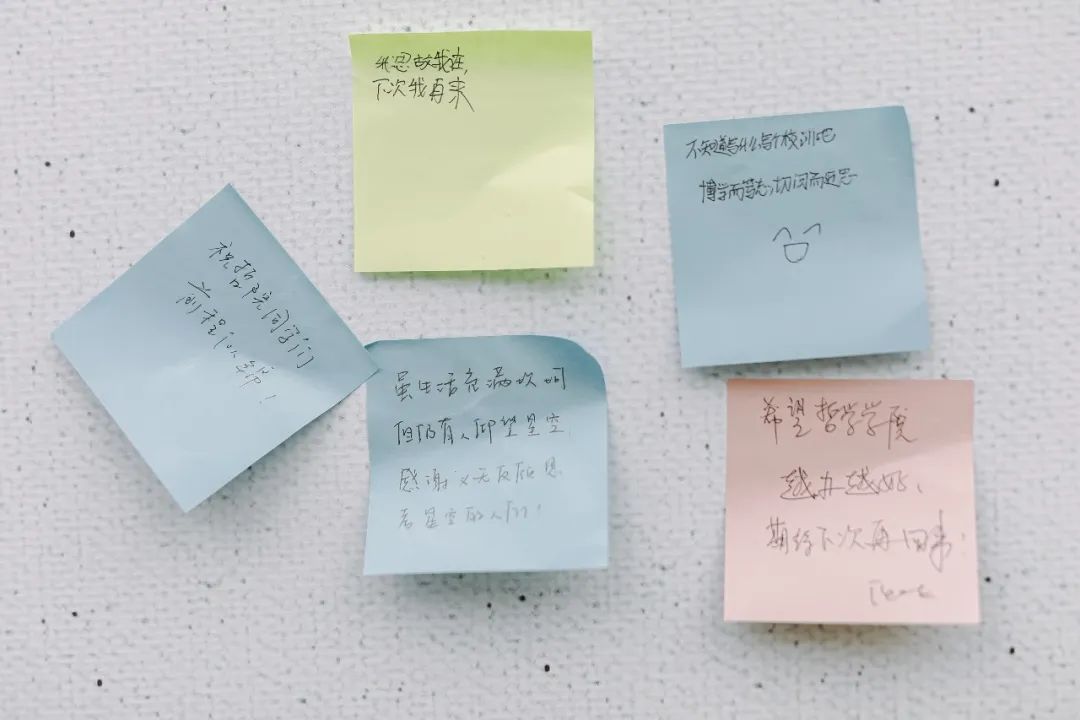 我思故我在,
下次我再来
不知道写什么写个校训吧
博学而笃志,切问而近思
祝哲院同学们
前程似锦!
虽生活充满坎坷
但仍有人仰望星空.
感谢义无反顾
着星空的人们!
希望哲学学院
越办越好、
期待下次再回来!